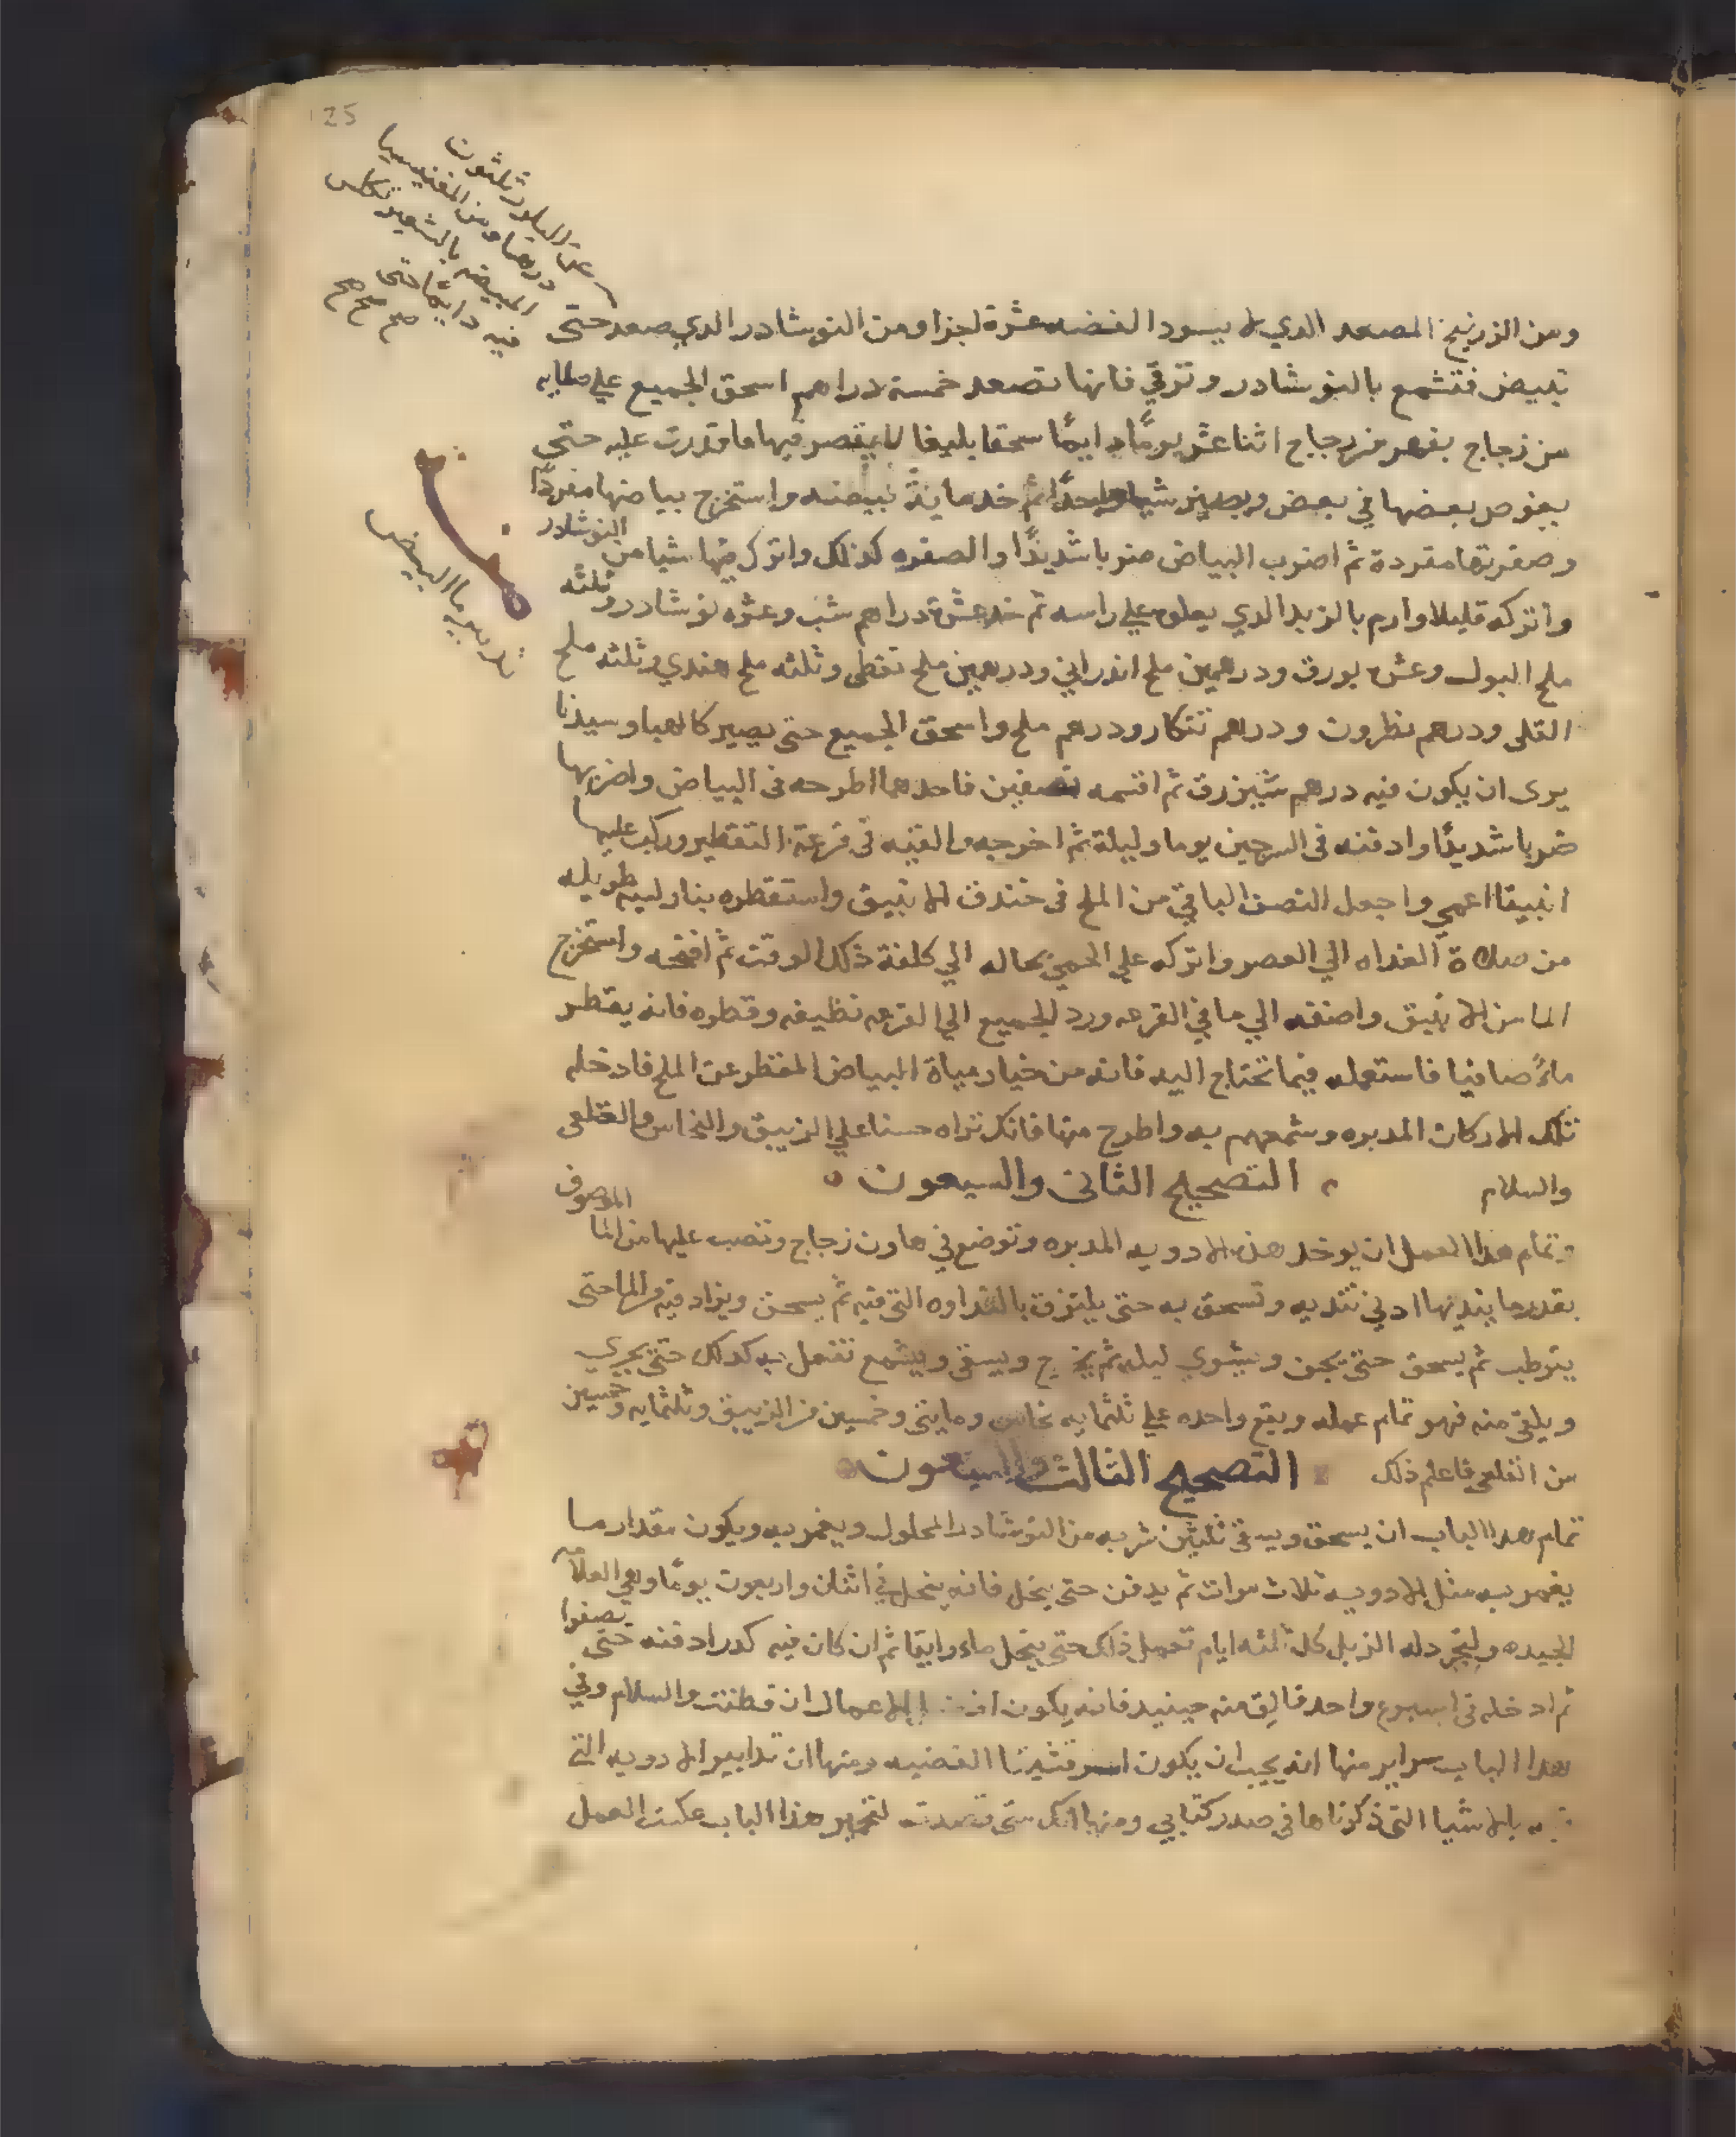 125
عن البلور ثلثون
درهما ومن المغنيسيا
المبيضه بالشعير تكلس
فيه دايمًا حتى
صح صح صح
ومن الزرنيخ المصعد الدي لا يسود الفضه عشرة اجزا ومن النوشادر الدي صعد حتى
تبيض فتشمع بالنوشادر وترقي فانها تصعد خمسة دراهم اسحق الجميع علي صلايه
من زجاج بفهر من زجاج اثنا عشر يومًا دايمًا سحقا بليغا لا يقصر فيها ما قدرت عليه حتى
يغوص بعضها في بعض ويصير شيا واحدًا ثم خد ماية بيضه واستخرج بياضها مفردًا
وصفرتها مفردة ثم اضرب البياض ضربا شديدًا والصفره كذلك واترك فيها شيا من النوشادر
واتركه قليلا وارم بالزبد الدي يعلو علي راسه ثم خد عشرة دراهم شب وعشره نوشادر وثلثه
ملح البول وعشره بورق ودرهمين ملح اندراني ودرهمين ملح نفطي وثلثه ملح هندي وثلثه ملح
القلي ودرهم نطرون ودرهم تنكار ودرهم ملح واسحق الجميع حتى يصير كالهبا وسيدنا
يرى ان يكون فيه درهم شيزرق ثم اقسمه نصفين فاحدهما اطرحه في البياض واضربها
ضربا شديدًا وادفنه في السرجين يوما وليلة ثم اخرجه والقيه في قرعة التقطير وركب عليها
انبيقا اعمي واجعل النصف الباقي من الملح في خندق الانبيق واستقطره بنار لينه طويله
من صلاة الغداه الي العصر واتركه علي الحمي بحاله الي كلفة ذلك الوقت ثم افتحه واستخرج
الما من الانبيق واضفه الي ما في القرعه ورد الجميع الي القرعه نظيفه وقطره فانه يقطر
ماءً صافيا فاستعمله فيما تحتاج اليه فانه من خيار مياة البياض المقطر عن الملح فادخله
تلك الاركان المدبره وشمعهم به واطرح منها فانك تراه حسنا علي الزيبق والنحاس والقلعي
والسلام التصحيح الثاني والسبعون
وتمام هدا العمل ان يوخد هذه الادويه المدبره وتوضع في هاون زجاج وتصب عليها من الما الموصوف
بقدر ما ينديها ادني تنديه وتسحق به حتى يلتزق بالنداوه التي فيه ثم يسحق ويزاد فيه من الما حتى
يترطب ثم يسحق حتى يجف ويشوي ليله ثم يخرج ويسقى ويشمع تفعل به كدلك حتى يجري
ويلقى منه فهو تمام عمله ويقع واحده علي ثلثمايه نحاس ومايتي وخمسين من الزيبق وثلثمايه وخمسين
من القلعي فاعلم ذلك التصحيح الثالث والسبعون
تمام هدا الباب ان يسحق ويسقى ثلثين شربه من النوشادر المحلول ويغمر به ويكون مقدار ما
يغمر به مثل الادويه ثلاث مرات ثم يدفن حتى ينحل فانه ينحل في اثنان واربعون يومًا وهي العلامه
الجيده وليجرد له الزبل كل ثلثه ايام تعمل ذلك حتى ينحل ماء رايقا ثم ان كان فيه كدر ادفنه حتى يصفوا
ثم ادخله في اسبوع واحد فالق منه حينيد فانه يكون الاعمال ان فطنت والسلام وفي
هدا الباب سراير منها انه يجب ان يكون المرقشيثا الفضيه ومنها ان تدابير الادويه التي
بالاشيا التي ذكرناها في صدر كتابي ومنها انك متى قصدت لتحمير هذا الباب عكست العمل
تدبير ما البيض